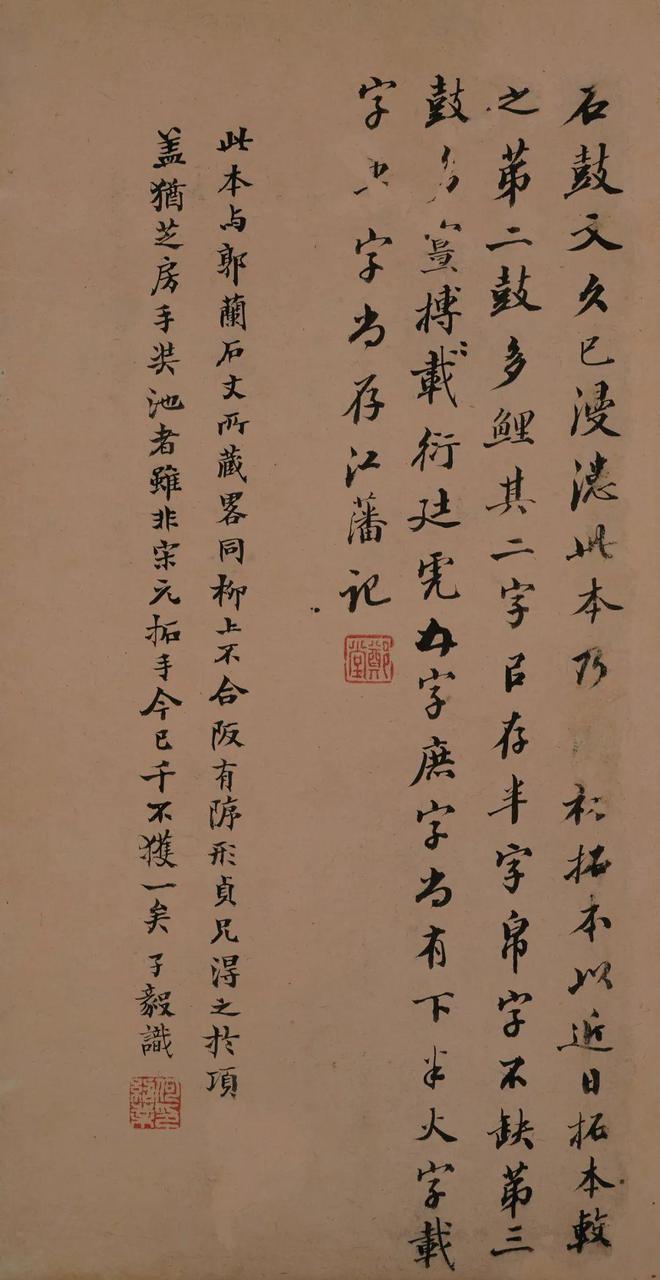 石鼓文久已漫漶此本乃初拓本以近日拓本較
之苐二鼓多鯉其二字㠯存半字帛字不缺苐三
鼓多搏載衍廷字庶字尚有下半火字載
字字尚存江藩記
鄭堂
此本与郭蘭石丈所藏畧同柳上不合阪有形貞兄得之於項
盖猶芝房手奘池者雖非宋元拓手今已千不獲一矣子毅識
何紹業印